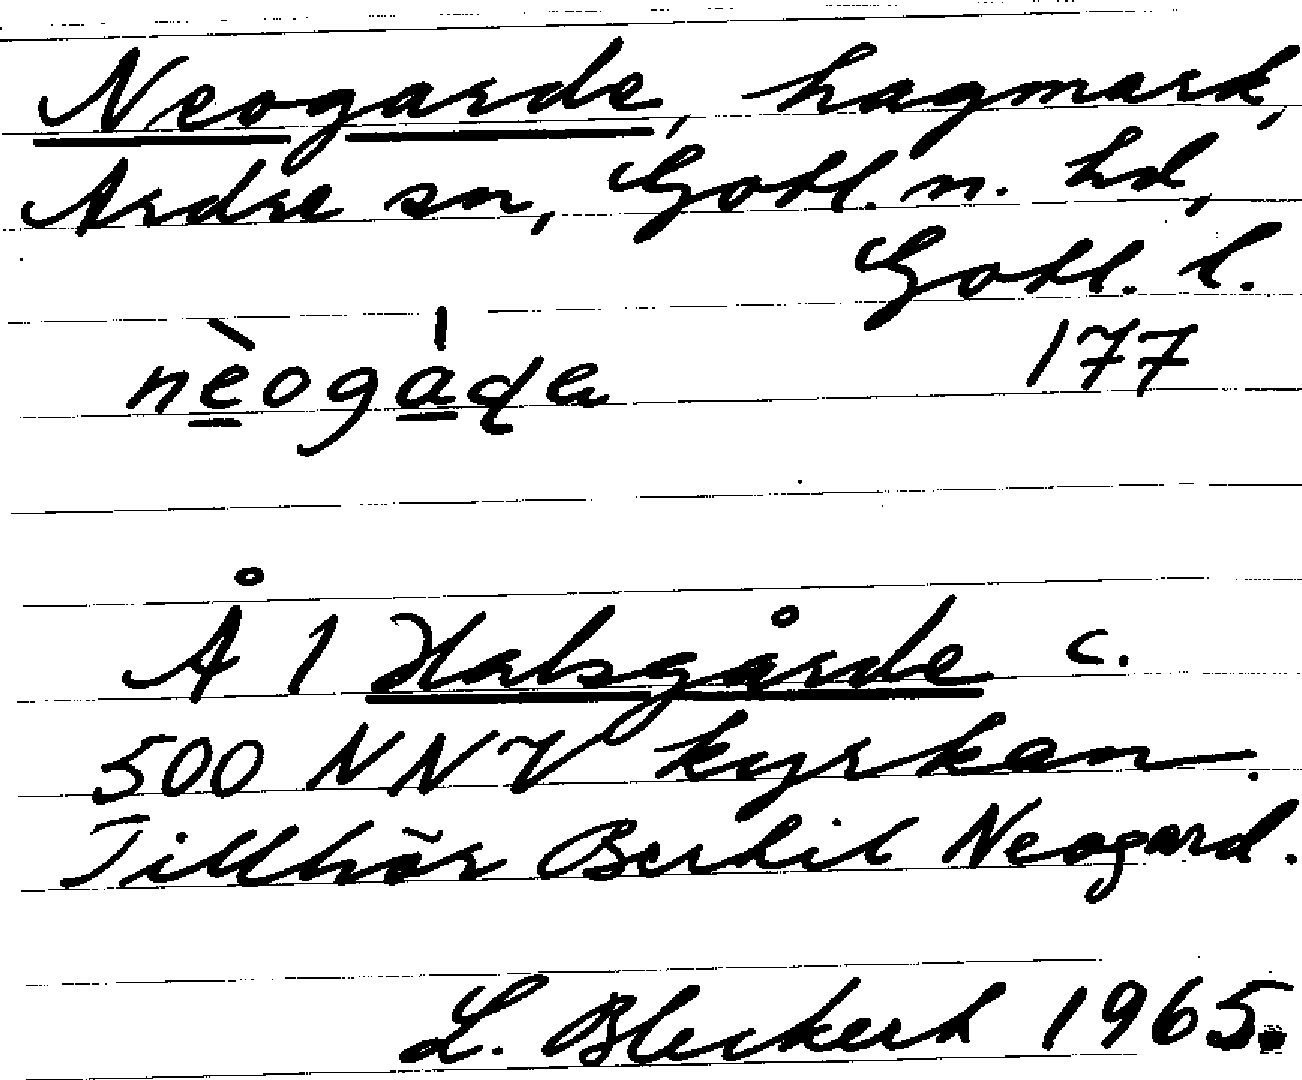 Neogarde, hagmark,
Ardre sn, Gotl. n. hd,
Gotl. l.
177
nèogáɖa
Å 1 Halsgårde c.
500 NNV kyrkan.
Tillhör Bertil Neogard.
L. Bleckert 1965.